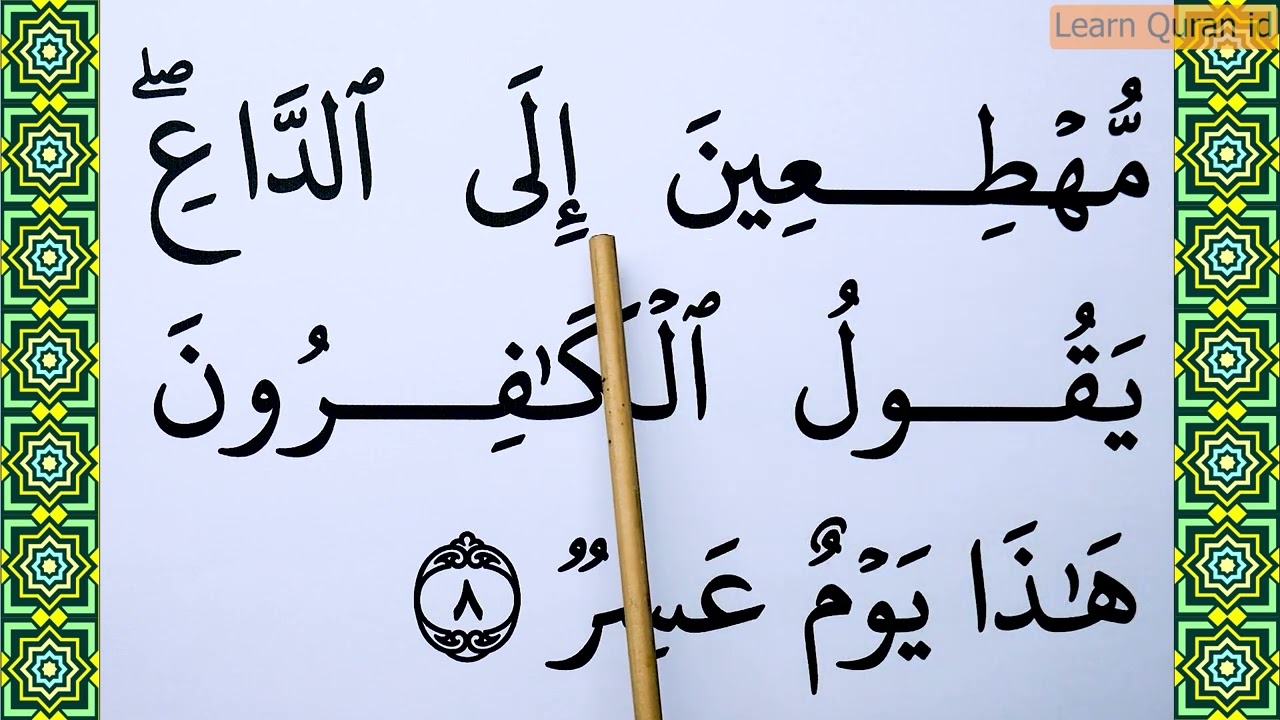 Learn Quran id
مُّهۡطِعِينَ إِلَى ٱلدَّاعِۖ
يَقُولُ ٱلۡكَٰفِرُونَ
هَٰذَا يَوۡمٌ عَسِرٞ ٨